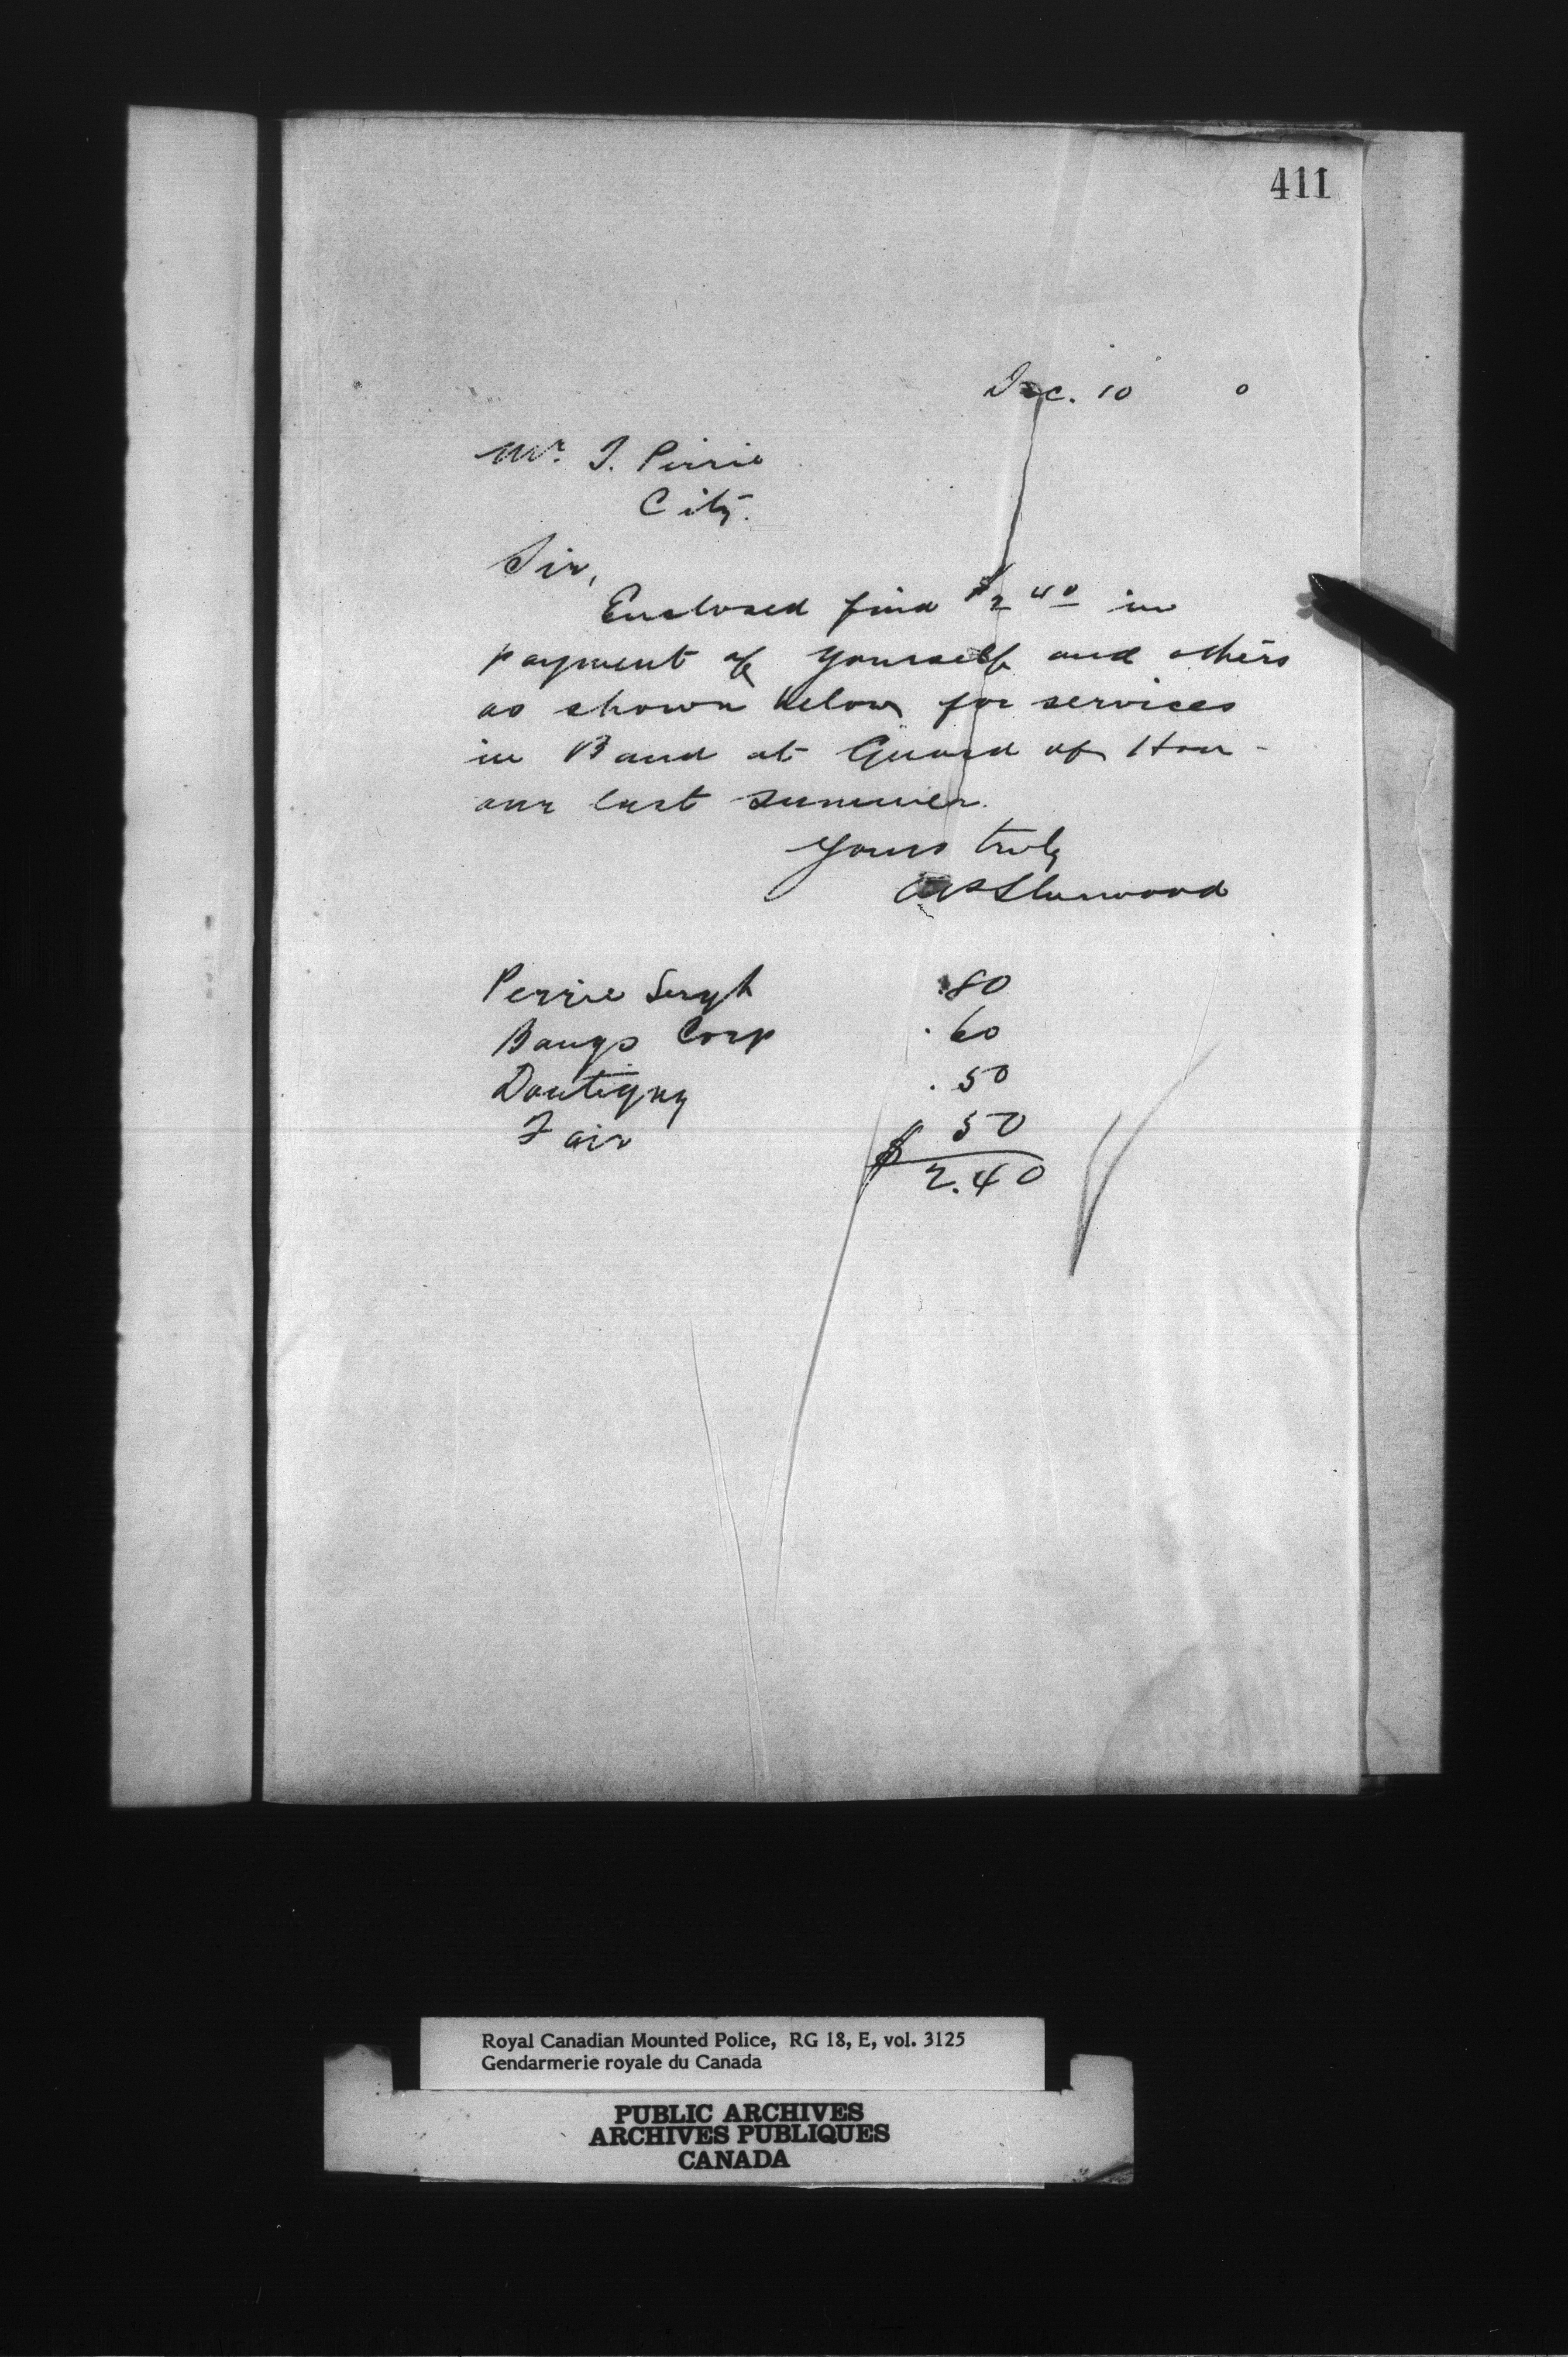 411
Dec. 10 0
Mr. J. Perrie
City.
Sir,
Enclosed find $2 40 in
payment of yourself and others
as shown below for services
in Band at Guard of Hon-
our last summer.
Yours truly
Sherwood
Perrie Sergt .80
Bangs Corp .60
Dontigny .50
Fair 50
$ 2.40
Royal Canadian Mounted Police, RG 18, E, vol. 3125
Gendarmerie royale du Canada
PUBLIC ARCHIVES
ARCHIVES PUBLIQUES
CANADA